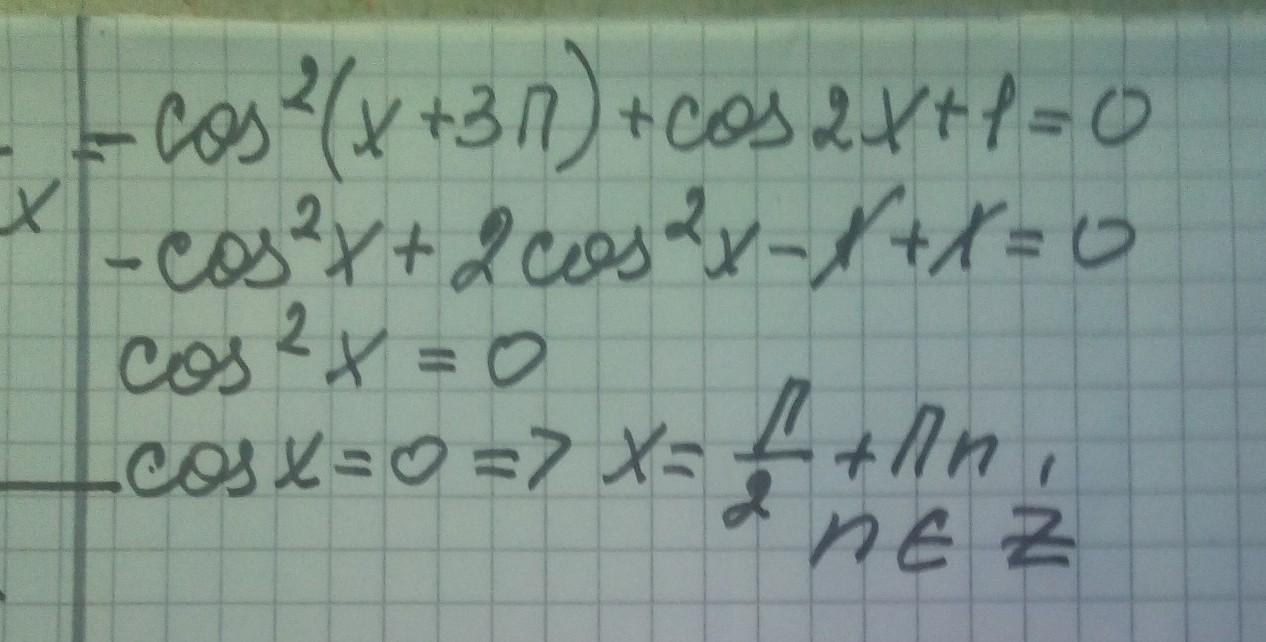 - cos²(x+3π)+cos2x+1=0
x
-cos²x+2cos²x-1+1=0
cos²x=0
cosx=0=>x=π/2+πn,
n∈Z